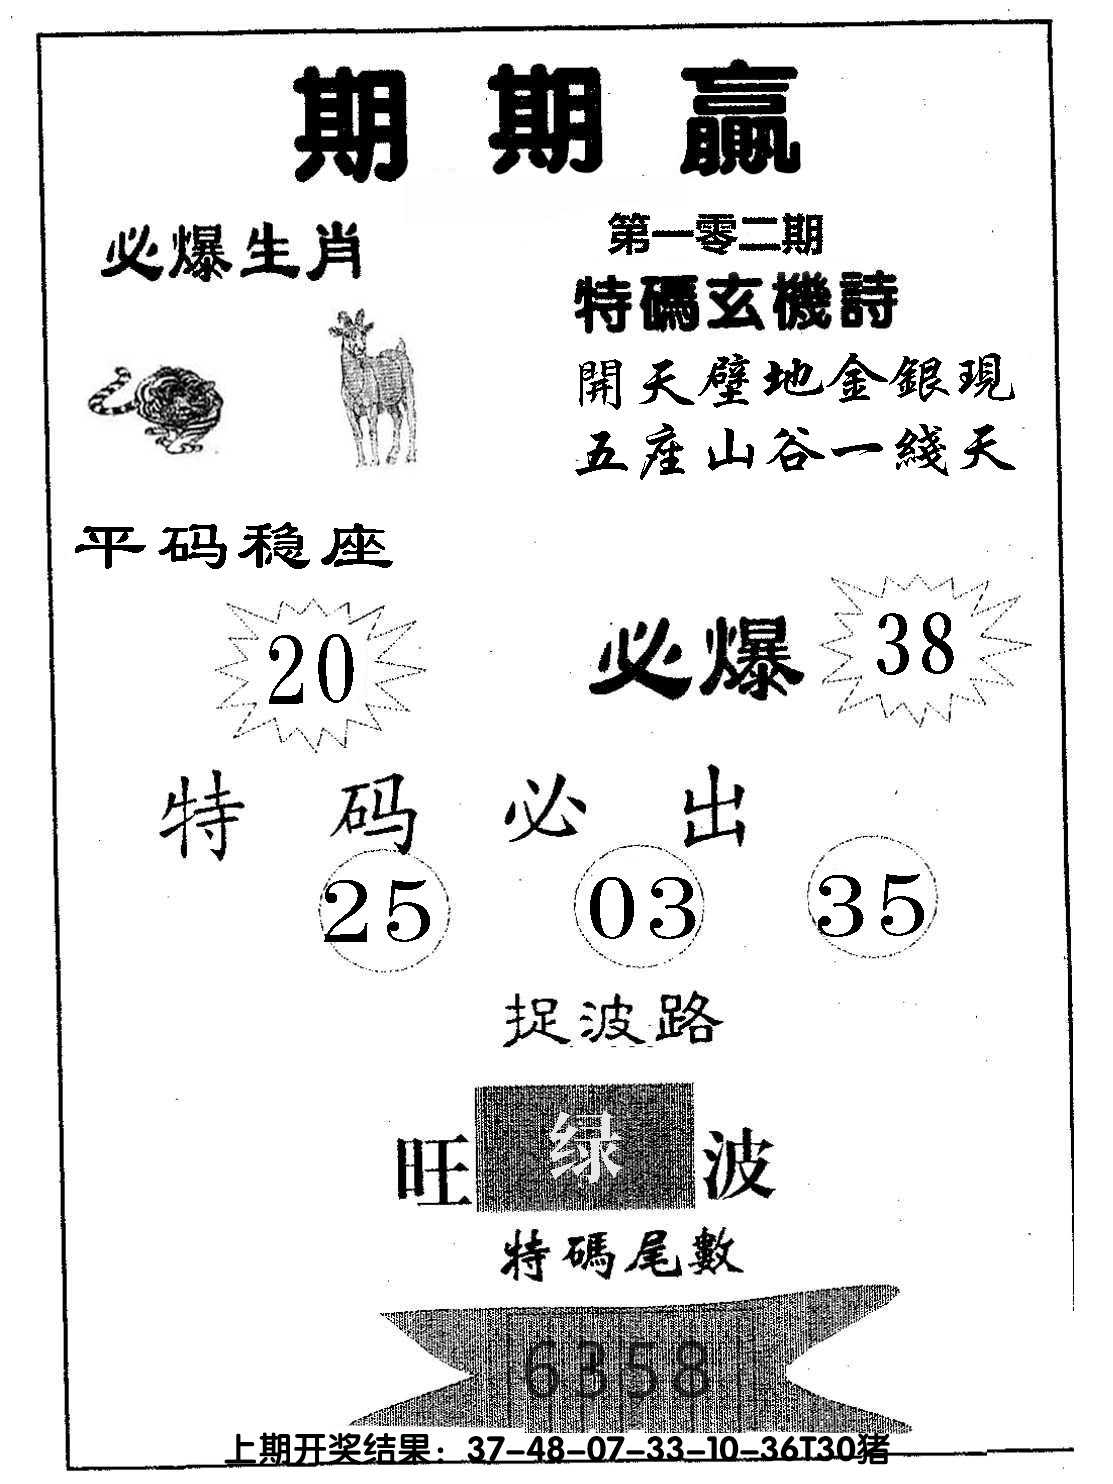 期期赢
必爆生肖
第一零二期
特碼玄機詩
開天壁地金銀現
五座山谷一綫天
平码稳座
20
必爆 38
特码必出
25 03 35
捉波路
旺绿波
特碼尾數
6358
上期开奖结果：37-48-07-33-10-36T30猪